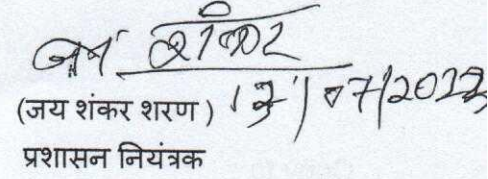 जय शंकर
(जय शंकर शरण) 13/07/2022
प्रशासन नियंत्रक